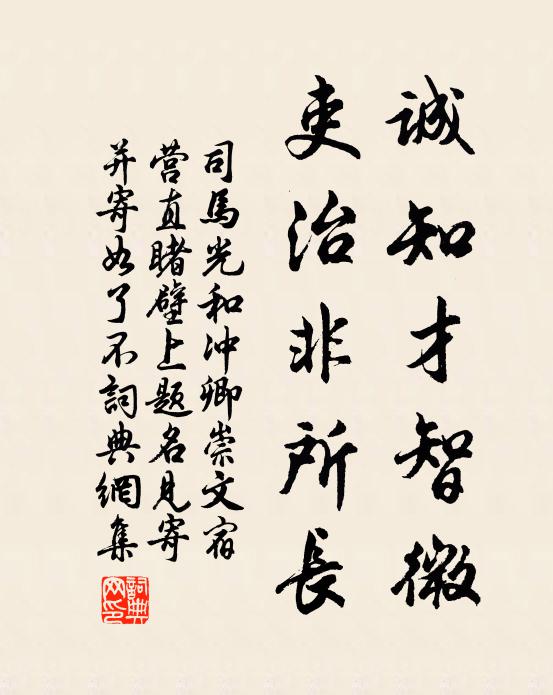 誠知才智微
吏治非所長
司馬光和沖卿崇文宿
营直睹壁上題名見寄
并寄如了不詞典網集
詞典網印